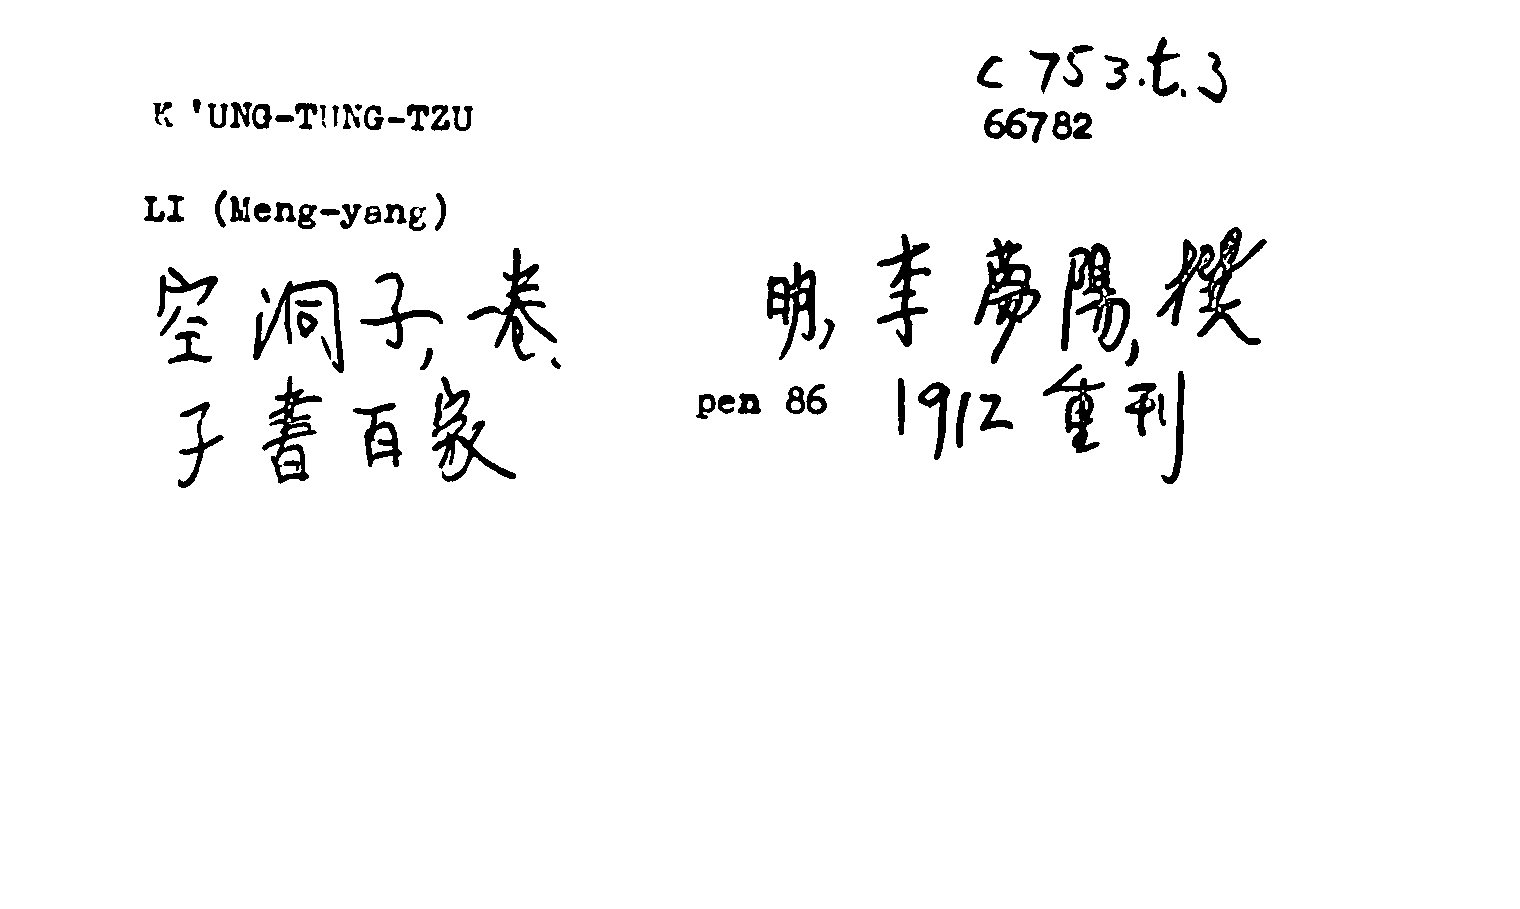 C 753.t.3
K'UNG-TUNG-TZU
66782
LI (Meng-yang)
空洞子,一卷、 明,李夢陽,撰
子書百家 pen 86 1912 重刊